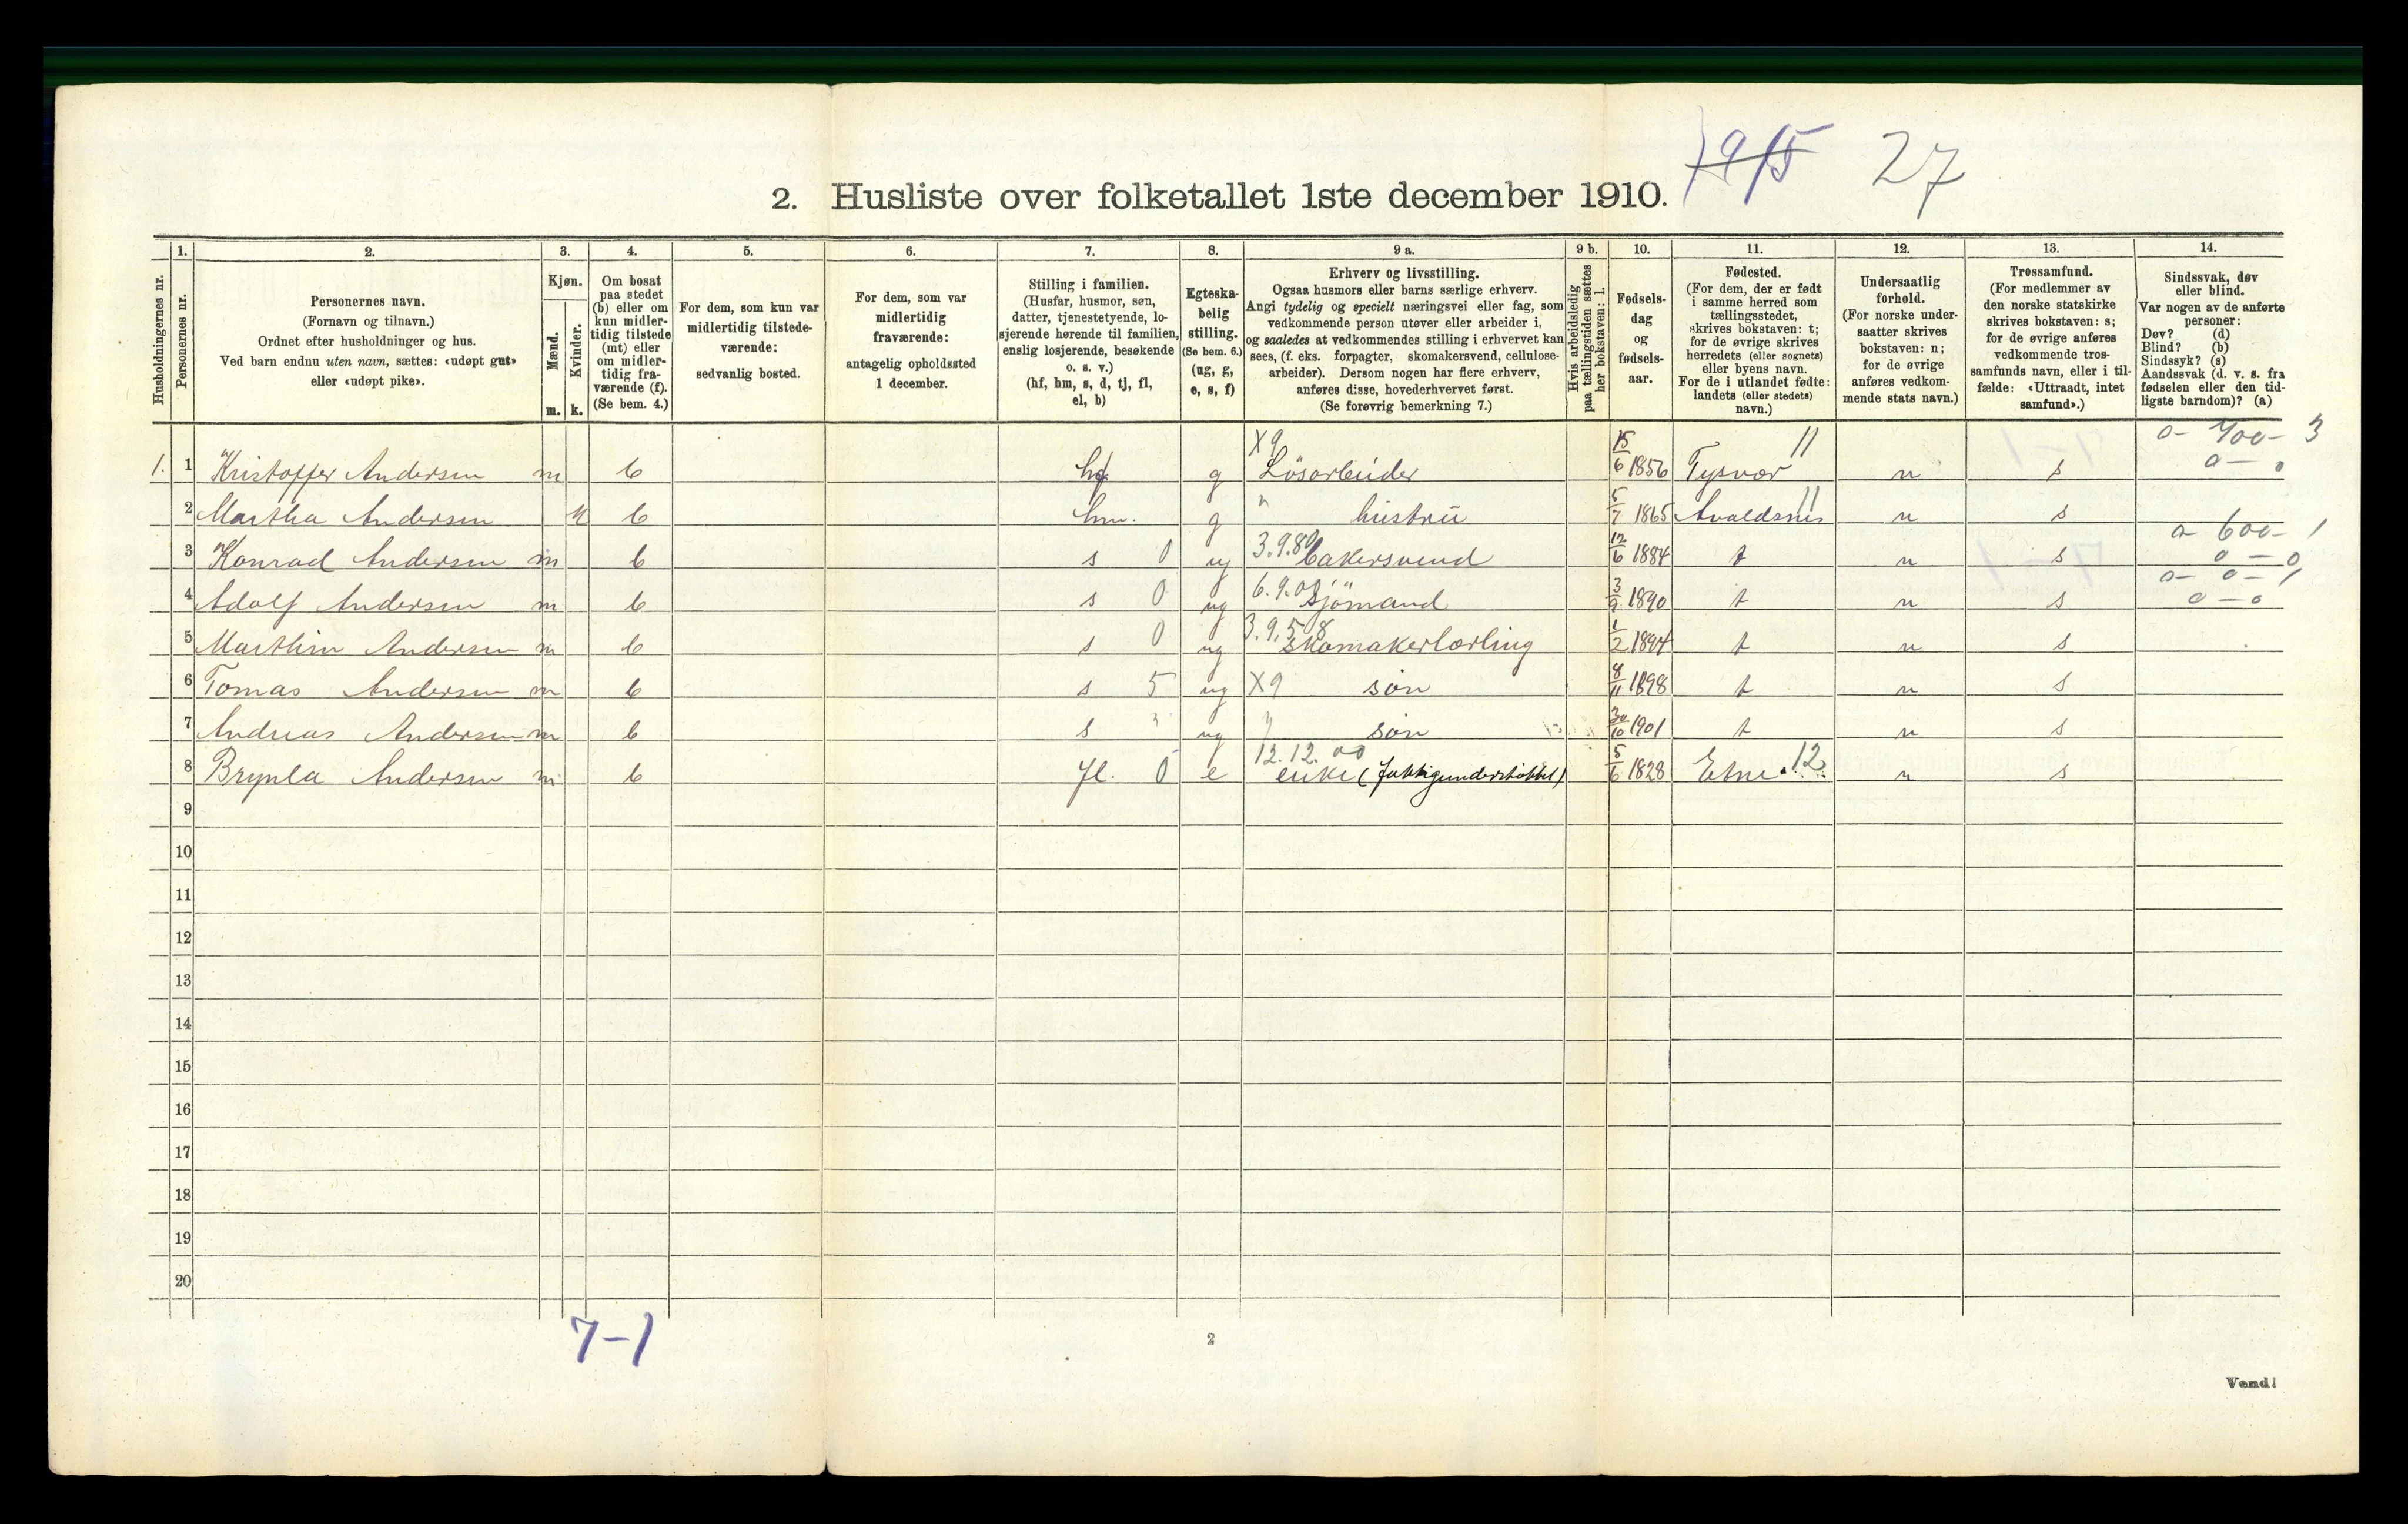 1915 27
2. Husliste over folketallet 1ste december 1910.
Husholdningernes nr.
1.
Personernes nr.
2.
Personernes navn.
(Fornavn og tilnavn.)
Ordnet efter husholdninger og hus.
Ved barn endnu uten navn, sættes: «udøpt gut»
eller «udøpt pike».
3.
Kjøn.
Mænd.
Kvinder.
m. k.
4.
Om bosat
paa stedet
(b) eller om
kun midler-
tidig tilstede
(mt) eller
om midler-
tidig fra-
værende (f).
(Se bem. 4.)
5.
For dem, som kun var
midlertidig tilstede-
værende:
sedvanlig bosted.
6.
For dem, som var
midlertidig
fraværende:
antagelig opholdssted
1 december.
7.
Stilling i familien.
(Husfar, husmor, søn,
datter, tjenestetyende, lo-
sjerende hørende til familien,
enslig losjerende, besøkende
o. s. v.)
(hf, hm, s, d, tj, fl,
el, b)
8.
Egteska-
belig
stilling.
(Se bem. 6.)
(ug, g,
e, s, f)
9 a.
Erhverv og livsstilling.
Ogsaa husmors eller barns særlige erhverv.
Angi tydelig og specielt næringsvei eller fag, som
vedkommende person utøver eller arbeider i,
og saaledes at vedkommendes stilling i erhvervet kan
sees, (f. eks. forpagter, skomakersvend, cellulose-
arbeider). Dersom nogen har flere erhverv,
anføres disse, hovederhvervet først.
(Se forøvrig bemerkning 7.)
9 b.
Hvis arbeidsledig
paa tællingstiden sættes
her bokstaven: l.
10.
Fødsels-
dag
og
fødsels-
aar.
11.
Fødested.
(For dem, der er født
i samme herred som
tællingsstedet,
skrives bokstaven: t;
for de øvrige skrives
herredets (eller sognets)
eller byens navn.
For de i utlandet fødte:
landets (eller stedets)
navn.)
12.
Undersaatlig
forhold.
(For norske under-
saatter skrives
bokstaven: n;
for de øvrige
anføres vedkom-
mende stats navn.)
13.
Trossamfund.
(For medlemmer av
den norske statskirke
skrives bokstaven: s;
for de øvrige anføres
vedkommende tros-
samfunds navn, eller i til-
fælde: «Uttraadt, intet
samfund».)
14.
Sindssvak, døv
eller blind.
Var nogen av de anførte
personer:
Døv? (d)
Blind? (b)
Sindssyk? (s)
Aandssvak (d. v. s. fra
fødselen eller den tid-
ligste barndom)? (a)
X9 11 0- 700- 3
1. 1 Kristoffer Andersen m b hf g Løsarbeider 15/6 1856 Tysvær n s 0 - 0
2 Martha Andersen k b hm. g " hustru 5/7 1865 Avaldsnes 11 n s
0- 600- 1
3 Konrad Andersen m b s 0 ug 3.9.80 bakersvend 12/6 1884 t n s 0 - 0
0- 0- 1
4 Adolf Andersen m b s 0 ug 6.9.00 sjömand 3/9 1890 t n s 0 - 0
5 Marthin Andersen m b s 0 ug 3.9.58 skomakerlærling 1/2 1894 t n s
6 Tomas Andersen m b s 5 ug X9 søn 8/11 1898 t n s
7 Andreas Andersen m b s ug søn 30/10 1901 t n s
12.12.00
8 Andersen m b fl. 0 e enke (fattigunderstøttet) 5/6 1828 Etne 12 n s
9
10
11
12
13
14
15
16
17
18
19
20
7-1
2
Vend!